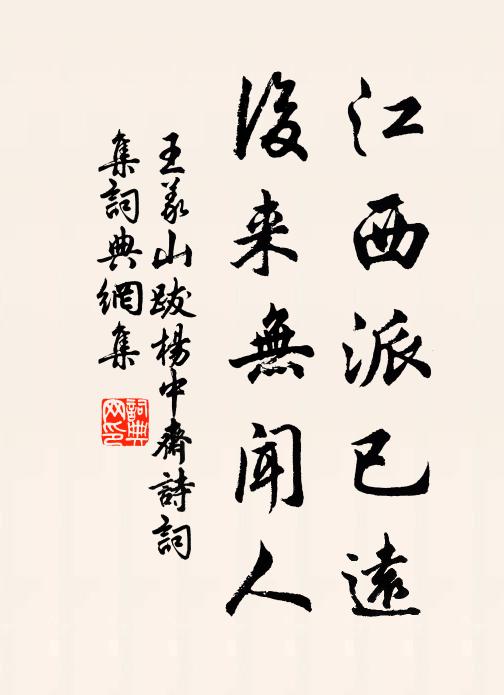 江西派已遠
後来無聞人
王義山跋楊中齋詩詞
集詞典網集
詞典
网印